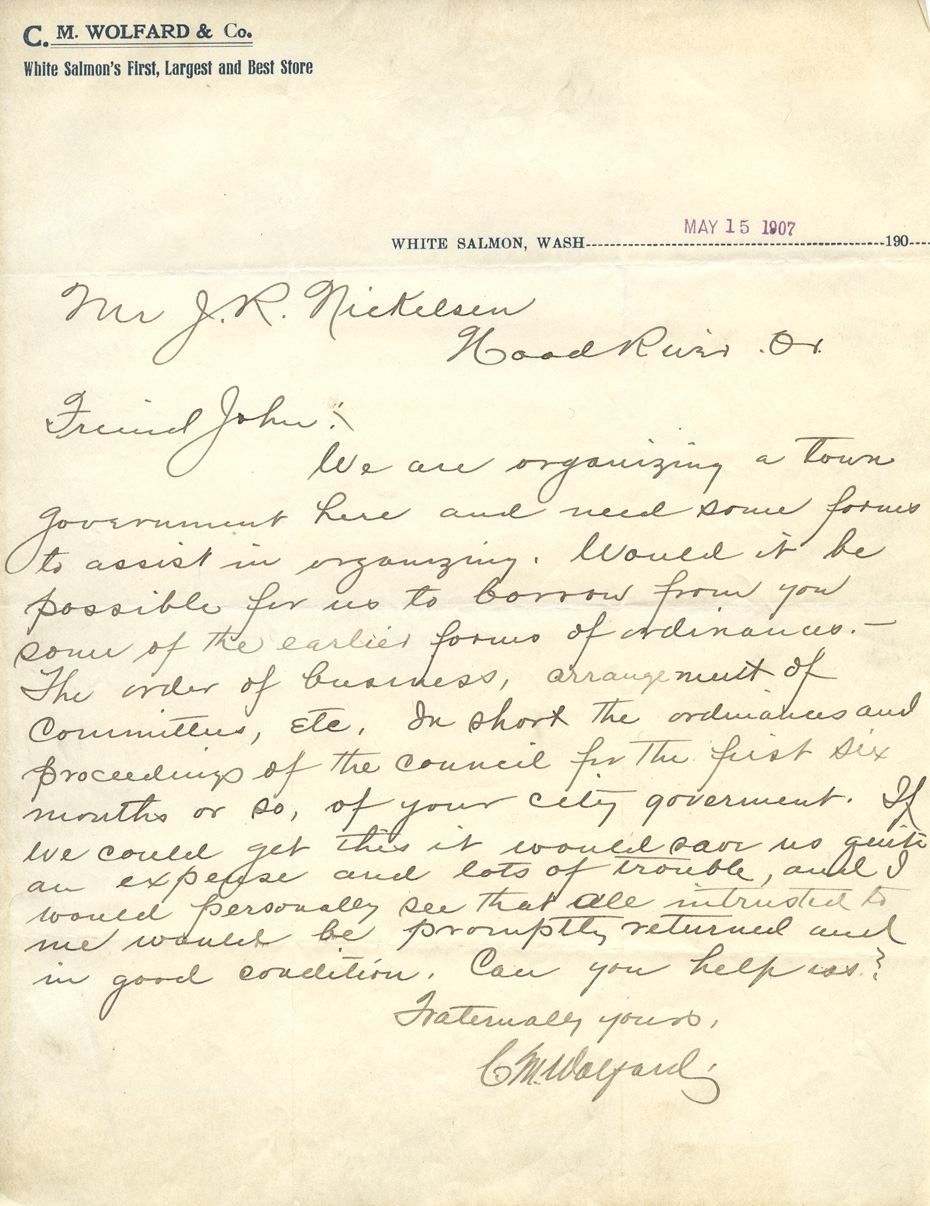 C. M. WOLFARD & Co.
White Salmon's First, Largest and Best Store
MAY 15 1907
WHITE SALMON, WASH. 190
Mr J. R. Nickelsen
Hood River . Or.
Freind John!
We are organizing a town
government here and need some forms
to assist in organizing. Would it be
possible for us to borrow from you
some of the earlier forms of ordinances. –
The order of business, arrangement of
Committees, Etc. In short the ordinances and
proceedings of the council for the first six
months or so, of your city goverment. If
we could get this it would save us quite
an expense and lots of trouble, and I
would personally see that all intrusted to
me would be promptly returned and
in good condition. Can you help us?
Fraternally yours,
C. M. Wolfard